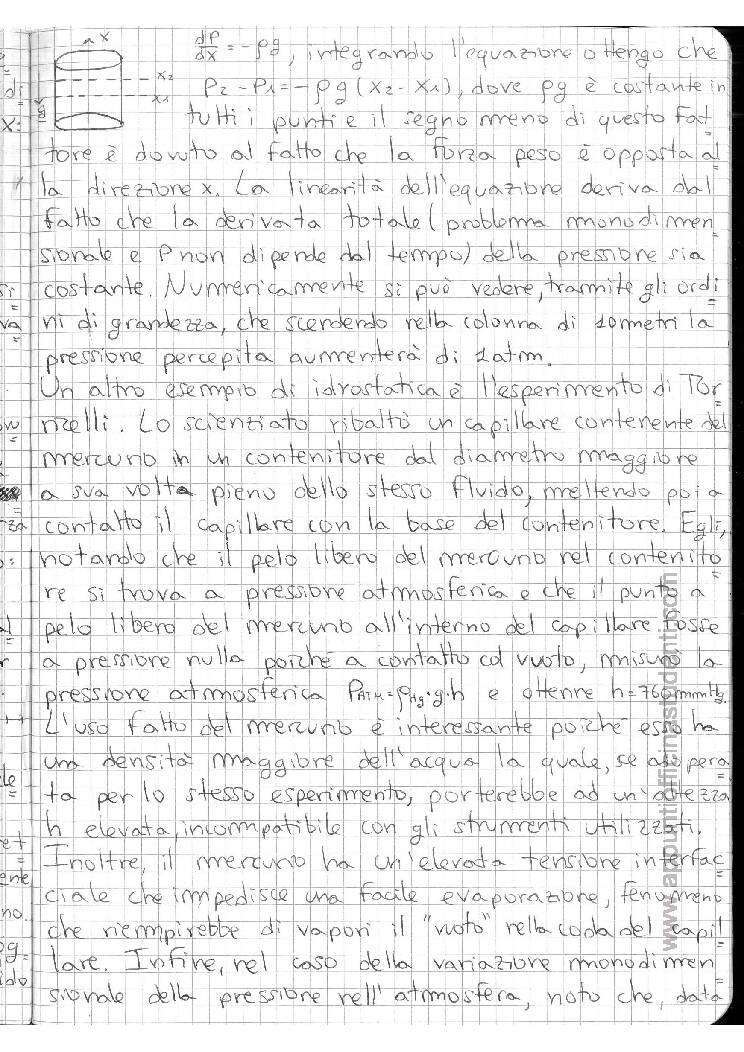 x
dP/dx = -ρg, integrando l'equazione ottengo che
x2
P2 - P1 = -ρg(x2 - x1), dove ρg è costante in
x1
g
tutti i punti e il segno meno di questo fat
tore è dovuto al fatto che la forza peso è opposta al
la direzione x. La linearità dell'equazione deriva dal
fatto che la derivata totale (problema monodimen
sionale e P non dipende dal tempo) della pressione sia
costante. Numericamente si può vedere, tramite gli ordi
ni di grandezza, che scendendo nella colonna di 10 metri la
pressione percepita aumenterà di 1 atm.
Un altro esempio di idrostatica è l'esperimento di Tor
ricelli. Lo scienziato ribaltò un capillare contenente del
mercurio in un contenitore dal diametro maggiore
a sua volta pieno dello stesso fluido, mettendo poi a
contatto il capillare con la base del contenitore. Egli,
notando che il pelo libero del mercurio nel contenito
re si trova a pressione atmosferica e che il punto a
pelo libero del mercurio all'interno del capillare fosse
a pressione nulla poiché a contatto col vuoto, misurò la
pressione atmosferica PATM = ρHg·g·h e ottenne h = 760 mmHg.
L'uso fatto del mercurio è interessante poiché esso ha
una densità maggiore dell'acqua la quale, se adopera
ta per lo stesso esperimento, porterebbe ad un'altezza
h elevata, incompatibile con gli strumenti utilizzati.
Inoltre, il mercurio ha un'elevata tensione interfac
ciale che impedisce una facile evaporazione, fenomeno
che riempirebbe di vapori il "vuoto" nella coda del capil
lare. Infine, nel caso della variazione monodimen
sionale della pressione nell'atmosfera, noto che, data
www.appuntiofficinastudenti.com